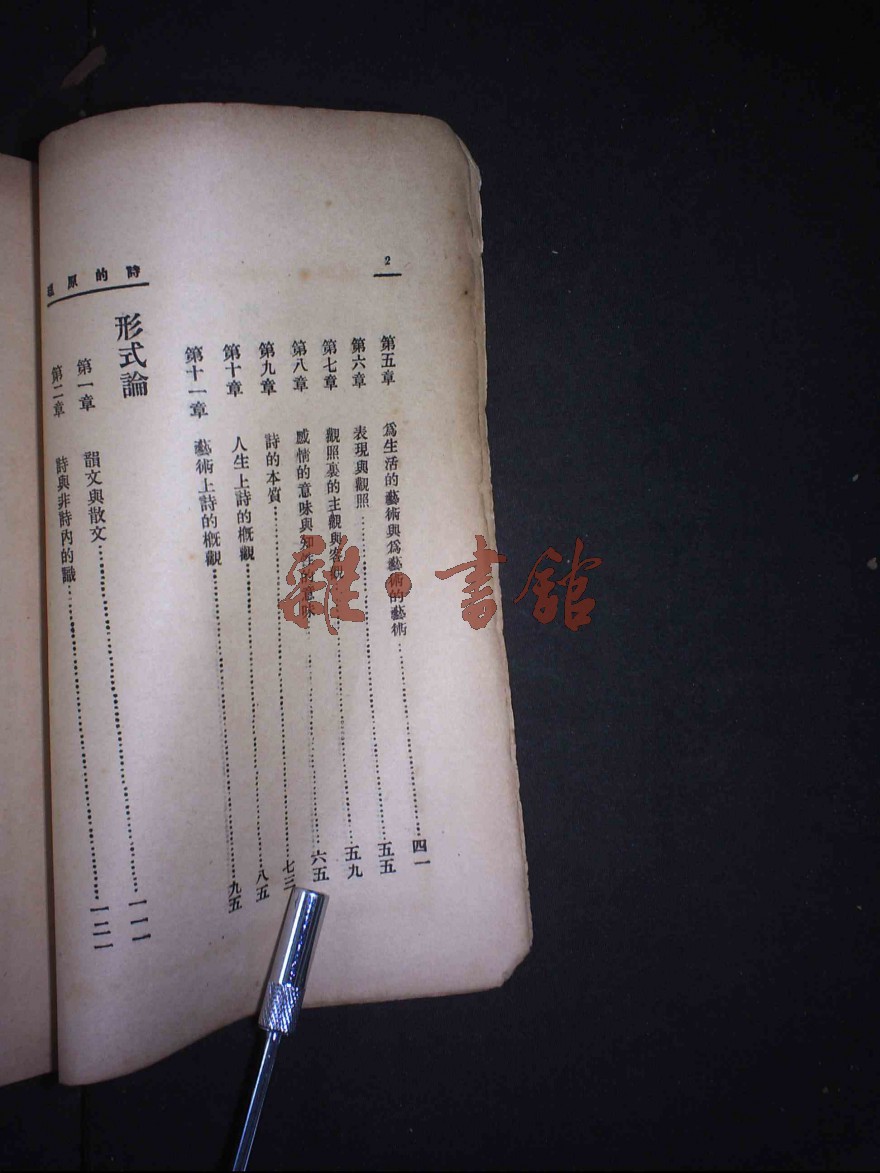 2
第五章 爲生活的藝術與爲藝術的藝術 四一
第六章 表現與觀照 五五
第七章 觀照裏的主觀與客觀 五九
第八章 感情的意味與知性的意味 六五
第九章 詩的本質 七三
第十章 人生上詩的概觀 八五
第十一章 藝術上詩的概觀 九五
形式論
第一章 韻文與散文 一一一
第二章 詩與非詩內的識 一二一
詩的原理
雜·書舘